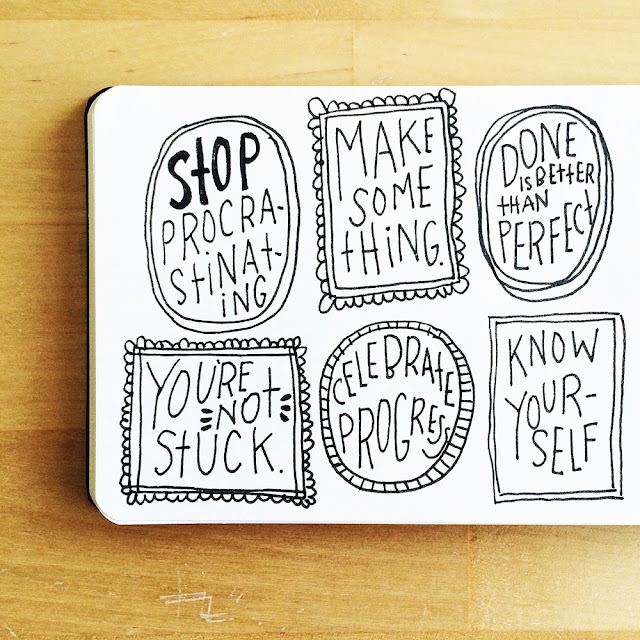 StOP
PROCRA-
StiNAt-
iNG
MAKE
SOME
tHiNG.
DONE
iS BEttER
tHAN
PERFECt
YOU'RE
NOt
StUCK.
CELEBRAtE
PROGRESS
KNOW
YOUR-
SELF